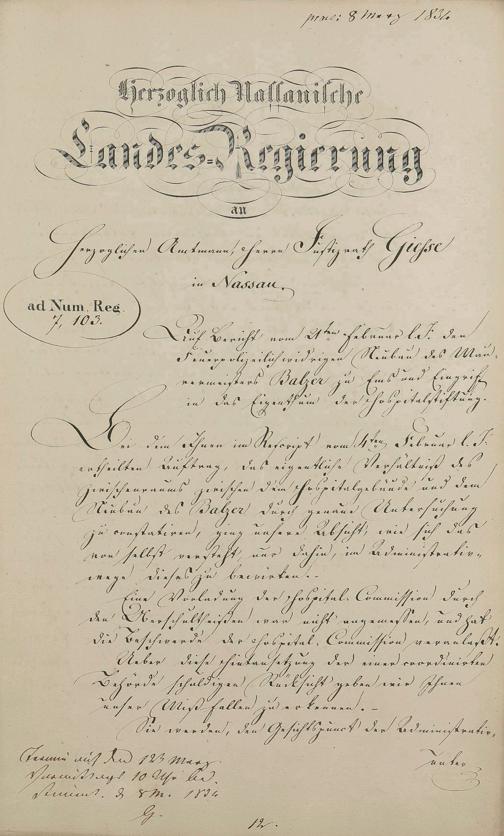 prae: 8 März 1834
Herzoglich Nassauische
Landes-Regierung
an
Herzoglichen Amtmann, Herrn Justizrath Giesse
in Nassau.
ad Num. Reg.
7, 103.
Auf Bericht vom 21ten Februar l. J. den
Feuerpolizeilichwidrigen Neubau des Mau-
rermeisters Balzer zu Ems und Eingriff
in das Eigenthum der Hospitalstiftung.
Bei dem Ihnen im Rescript vom 4ten Februar l. J.
ertheilten Auftrag, das eigentliche Verhältniß des
Zwischenraums zwischen dem Hospitalgebäude und dem
Neubau des Balzer durch genaue Untersuchung
zu constatiren, ging unsere Absicht, wie sich das
von selbst versteht, nur dahin, im Administrativ-
wege dieses zu bewirken.-
Eine Vorladung der Hospital-Commission durch
den Oberschultheißen war nicht angemessen, und hat
die Beschwerde der Hospital-Commission veranlaßt.
Ueber diese Hintansetzung der einer coordinirten
Behörde schuldigen Rücksicht geben wir Ihnen
unser Mißfallen zu erkennen.-
Sie werden, den Gesichtspunct der Administrativ-
Termin auf den 12 März
Vormittags 10 Uhr
d. 8 M. 1834
G.
12.